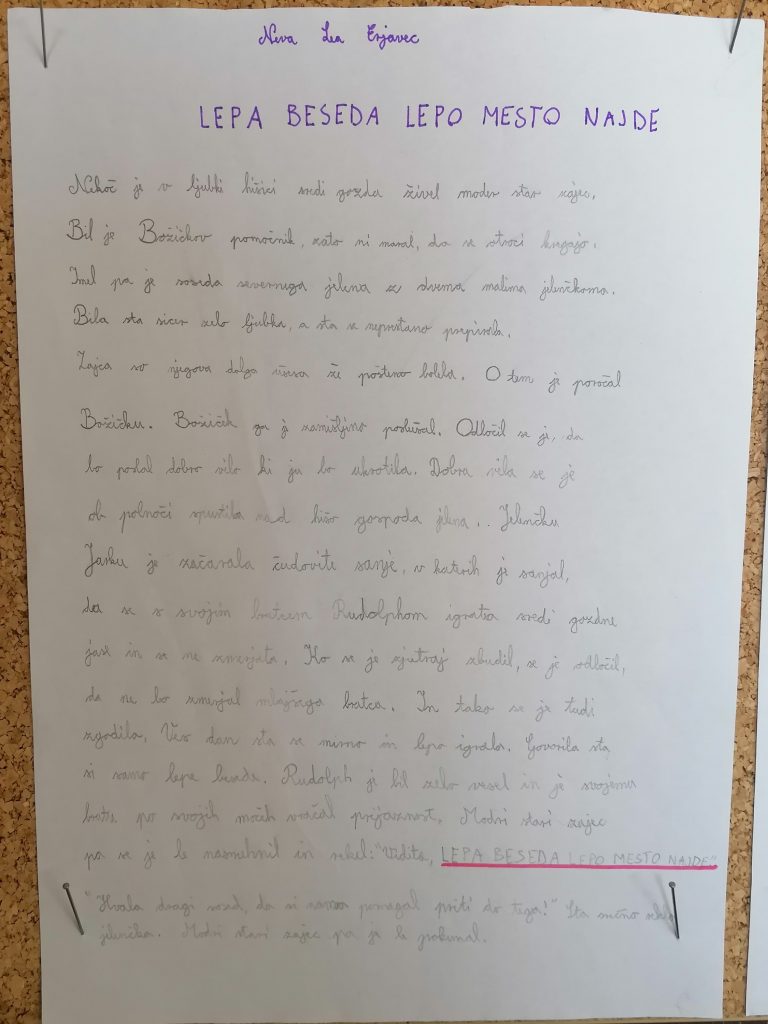 Neva Lea Erjavec
LEPA BESEDA LEPO MESTO NAJDE
Nekoč je v ljubki hišici sredi gozda živel moder star zajec.
Bil je Božičkov pomočnik, zato ni maral, da se otroci kregajo.
Imel pa je soseda severnega jelena z dvema malima jelenčkoma.
Bila sta sicer zelo ljubka, a sta se neprestano prepirala.
Zajca so njegova dolga ušesa že pošteno bolela. O tem je poročal
Božičku. Božiček ga je zamišljeno poslušal. Odločil se je, da
bo poslal dobro vilo ki ju bo ukrotila. Dobra vila se je
ob polnoči spustila nad hišo gospoda jelena.. Jelenčku
Jasku je začarala čudovite sanje, v katerih je sanjal,
da se s svojim bratcem Rudolphom igrata sredi gozdne
jase in se ne zmerjata. Ko se je zjutraj zbudil, se je odločil,
da ne bo zmerjal mlajšega bratca. In tako se je tudi
zgodila. Ves dan sta se mirno in lepo igrala. Govorila sta
si samo lepe besede. Rudolph je bil zelo vesel in je svojemu
bratu po svojih močeh vračal prijaznost. Modri stari zajec
pa se je le nasmehnil in rekel: "Vidita, LEPA BESEDA LEPO MESTO NAJDE"
"Hvala dragi sosed, da si nama pomagal priti do tega!" Sta rekla
jelenčka. Modri stari zajec pa je le pokimal.